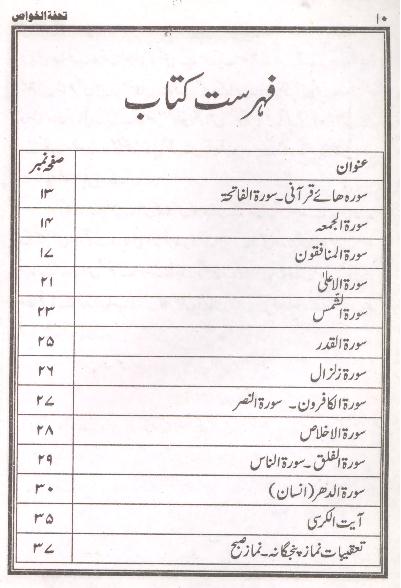 ۱۰ تحفۃ الخواص
فہرست کتاب
عنوان صفحہ نمبر
سورہ ھائے قرآنی۔سورۃ الفاتحۃ ۱۳
سورۃ الجمعہ ۱۴
سورۃ المنافقون ۱۷
سورۃ الاعلیٰ ۲۱
سورۃ الشمس ۲۳
سورۃ القدر ۲۵
سورۃ زلزال ۲۶
سورۃ الکافرون۔ سورۃ النصر ۲۷
سورۃ الاخلاص ۲۸
سورۃ الفلق۔سورۃ الناس ۲۹
سورۃ الدھر(انسان) ۳۰
آیت الکرسی ۳۵
تعقیبات نماز پنجگانہ۔نماز صبح ۳۷